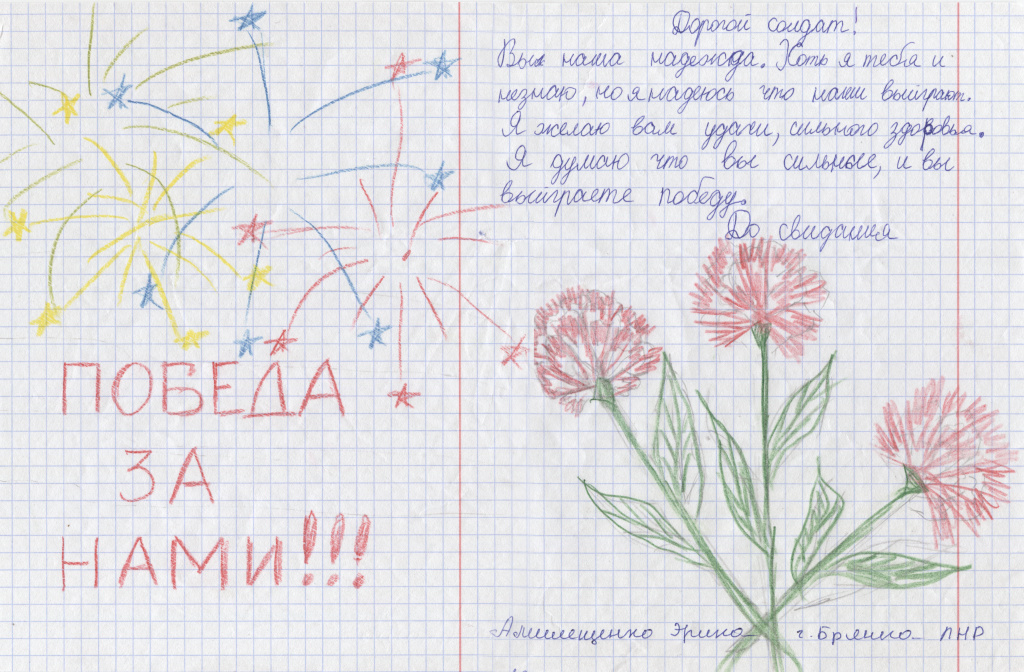 ПОБЕДА
ЗА
НАМИ!!!
Дорогой солдат!
Вы наша надежда. Хоть я тебя и
незнаю, но я надеюсь что наши выиграют.
Я желаю вам удачи, сильного здоровья.
Я думаю что вы сильные, и вы
выиграете победу.
До свидания
г. Брянка ЛНР